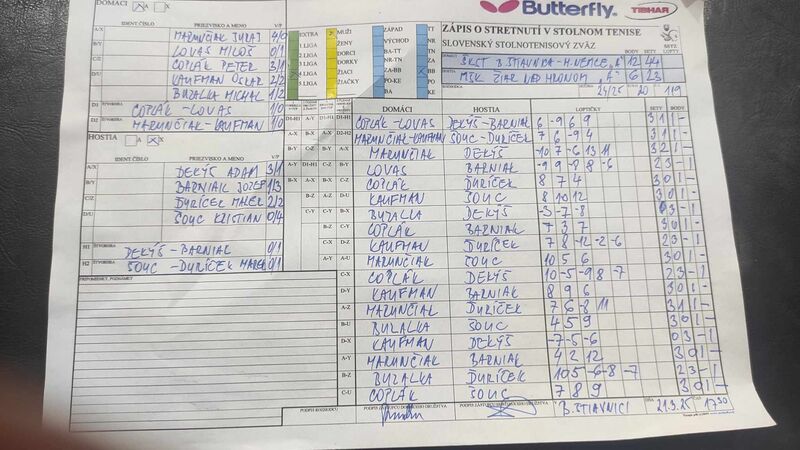 DOMÁCI A X
Butterfly TIBHAR
ZÁPIS O STRETNUTÍ V STOLNOM TENISE
SLOVENSKÝ STOLNOTENISOVÝ ZVÄZ
IDENT ČÍSLO PRIEZVISKO A MENO V/P
A/X MARUNČIAK JURAJ 4/0
B/Y LOVAS MILOŠ 0/1
C/Z COPLÁK PETER 3/1
KAUFMAN OSKAR 2/2
BUZALKA MICHAL 1/2
D1 COPLÁK-LOVAS 1/0
D2 MARUNČIAK-KAUFMAN 1/0
EXTRA
1.LIGA
2.LIGA
3.LIGA
4.LIGA
5.LIGA
MUŽI
ŽENY
DORCI
DORKY
ŽIACI
ŽIAČKY
ZÁPAD
VÝCHOD
BA-TT
TN-NR
ZA-BB
PO-KE
BA TT
TN
NR
ZA
BB
PO
KE
BODY SETY
BKST B.ŠTIAVNICA-H.NEMCE "A" 12 44
MŠK ŽIAR NAD HRONOM "A" 6 23
24/25 20 119
HOSTIA A X
IDENT ČÍSLO PRIEZVISKO A MENO V/P
A/X DEKÝŠ ADAM 3/1
B/Y BARNIAK JOZEF 1/3
C/Z ĎURÍČEK MAREK 2/2
D/U ŠOUC KRISTIAN 0/4
H1 DEKÝŠ-BARNIAK 0/1
H2 ŠOUC-ĎURÍČEK MAREK 0/1
PRIPOMIENKY, POZNÁMKY
DOMÁCI HOSTIA LOPTIČKY SETY BODY
COPLÁK-LOVAS DEKÝŠ-BARNIAK 6 -9 6 9 3 1 1 -
MARUNČIAK-KAUFMAN ŠOUC-ĎURÍČEK 7 6 -9 4 3 1 1 -
MARUNČIAK DEKÝŠ -10 7 -6 13 11 3 2 1 -
LOVAS BARNIAK -9 9 -8 8 -6 2 3 - 1
COPLÁK ĎURÍČEK 8 7 4 3 0 1 -
KAUFMAN ŠOUC 8 10 12 3 0 1 -
BUZALKA DEKÝŠ -3 -7 -8 0 3 - 1
COPLÁK BARNIAK 7 3 7 3 0 1 -
KAUFMAN ĎURÍČEK 7 8 -12 -2 -6 2 3 - 1
MARUNČIAK ŠOUC 10 5 6 3 0 1 -
COPLÁK DEKÝŠ -10 -5 9 8 -7 2 3 - 1
KAUFMAN BARNIAK 8 9 6 3 0 1 -
MARUNČIAK ĎURÍČEK 7 6 -8 11 3 1 1 -
BUZALKA ŠOUC 4 5 9 3 0 1 -
KAUFMAN DEKÝŠ -7 -5 -6 0 3 - 1
MARUNČIAK BARNIAK 4 2 12 3 0 1 -
BUZALKA ĎURÍČEK 10 5 -6 -8 -7 2 3 - 1
COPLÁK ŠOUC 7 8 9 3 0 1 -
PODPIS ROZHODCU
PODPIS ZÁSTUPCU DOMÁCEHO DRUŽSTVA
V B.ŠTIAVNICI DŇA 21.3.25 17:30